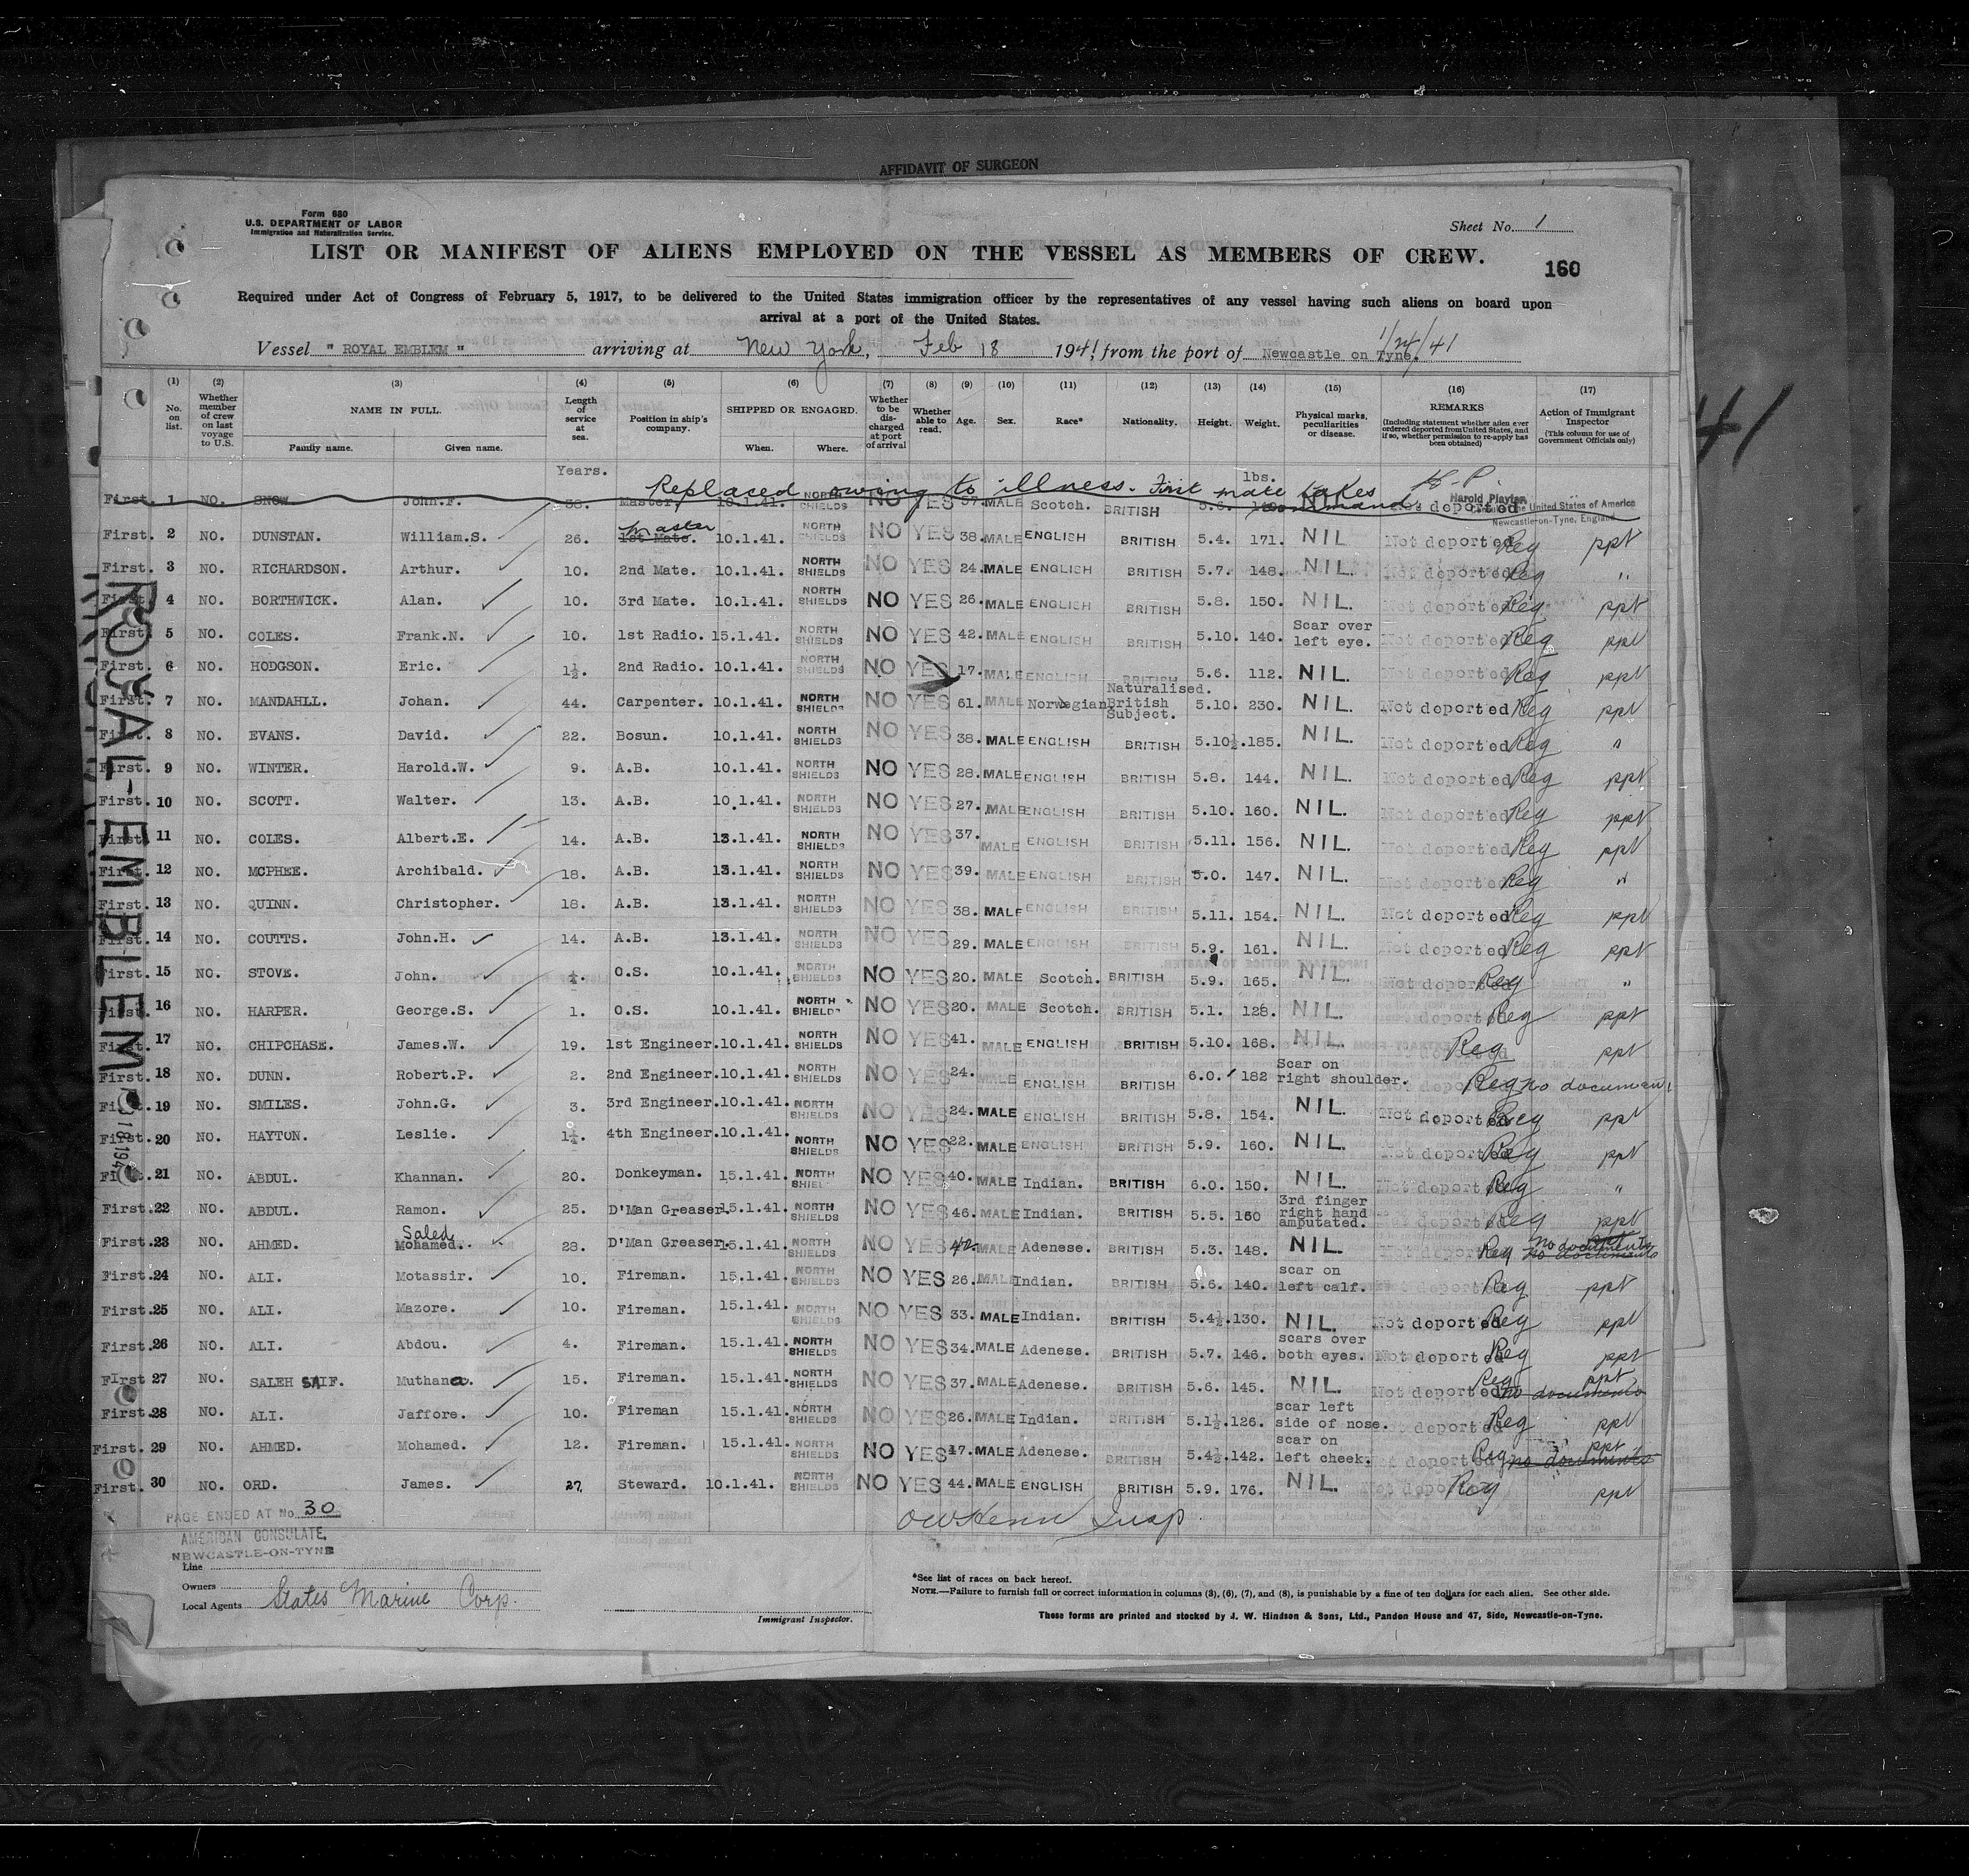 AFFIDAVIT OF SURGEON
Form 680
U.S. DEPARTMENT OF LABOR
Immigration and Naturalization Service.
Sheet No. 1
LIST OR MANIFEST OF ALIENS EMPLOYED ON THE VESSEL AS MEMBERS OF CREW.
160
Required under Act of Congress of February 5, 1917, to be delivered to the United States immigration officer by the representatives of any vessel having such aliens on board upon
arrival at a port of the United States.
Vessel " ROYAL EMBLEM " arriving at New York, Feb 18 1941 from the port of Newcastle on Tyne. 1/24/41
(1) No. on list. (2) Whether member of crew on last voyage to U.S. (3) NAME IN FULL. Family name. Given name. (4) Length of service at sea. (5) Position in ship's company. (6) SHIPPED OR ENGAGED. When. Where. (7) Whether to be discharged at port of arrival (8) Whether able to read. (9) Age. (10) Sex. (11) Race* (12) Nationality. (13) Height. (14) Weight. (15) Physical marks, peculiarities or disease. (16) REMARKS (Including statement whether alien ever ordered deported from United States, and if so, whether permission to re-apply has been obtained) (17) Action of Immigrant Inspector (This column for use of Government Officials only)
Years. lbs.
Replaced owing to illness. First mate takes command. H.P.
Harold Playter
Consul of the United States of America
Newcastle-on-Tyne, England
First. 1 NO. SNOW John.F. 38. Master. 10.1.41. NORTH SHIELDS NO YES 57. MALE Scotch. BRITISH NIL Not deported
First. 2 NO. DUNSTAN. William.S. 26. 1st Mate. Master 10.1.41. NORTH SHIELDS NO YES 38. MALE ENGLISH BRITISH 5.4. 171. NIL Not deported Reg ppt
First. 3 NO. RICHARDSON. Arthur. 10. 2nd Mate. 10.1.41. NORTH SHIELDS NO YES 24. MALE ENGLISH BRITISH 5.7. 148. NIL. Not deported Reg "
First. 4 NO. BORTHWICK. Alan. 10. 3rd Mate. 10.1.41. NORTH SHIELDS NO YES 26. MALE ENGLISH BRITISH 5.8. 150. NIL. Not deported Reg ppt
First. 5 NO. COLES. Frank.N. 10. 1st Radio. 15.1.41. NORTH SHIELDS NO YES 42. MALE ENGLISH BRITISH 5.10. 140. Scar over left eye. Not deported Reg ppt
First. 6 NO. HODGSON. Eric. 1½. 2nd Radio. 10.1.41. NORTH SHIELDS NO YES 17. MALE ENGLISH BRITISH 5.6. 112. NIL. Not deported Reg ppt
First. 7 NO. MANDAHLL. Johan. 44. Carpenter. 10.1.41. NORTH SHIELDS NO YES 61. MALE Norwegian Naturalised. British Subject. 5.10. 230. NIL. Not deported Reg ppt
First. 8 NO. EVANS. David. 22. Bosun. 10.1.41. NORTH SHIELDS NO YES 38. MALE ENGLISH BRITISH 5.10½. 185. NIL. Not deported Reg "
First. 9 NO. WINTER. Harold.W. 9. A.B. 10.1.41. NORTH SHIELDS NO YES 28. MALE ENGLISH BRITISH 5.8. 144. NIL. Not deported Reg ppt
First. 10 NO. SCOTT. Walter. 13. A.B. 10.1.41. NORTH SHIELDS NO YES 27. MALE ENGLISH BRITISH 5.10. 160. NIL. Not deported Reg ppt
First. 11 NO. COLES. Albert.E. 14. A.B. 13.1.41. NORTH SHIELDS NO YES 37. MALE ENGLISH BRITISH 5.11. 156. NIL. Not deported Reg ppt
First. 12 NO. MCPHEE. Archibald. 18. A.B. 13.1.41. NORTH SHIELDS NO YES 39. MALE ENGLISH BRITISH 5.0. 147. NIL. Not deported Reg "
First. 13 NO. QUINN. Christopher. 18. A.B. 13.1.41. NORTH SHIELDS NO YES 38. MALE ENGLISH BRITISH 5.11. 154. NIL. Not deported Reg ppt
First. 14 NO. COUTTS. John.H. 14. A.B. 13.1.41. NORTH SHIELDS NO YES 29. MALE ENGLISH BRITISH 5.9. 161. NIL. Not deported Reg ppt
First. 15 NO. STOVE. John. O.S. 10.1.41. NORTH SHIELDS NO YES 20. MALE Scotch. BRITISH 5.9. 165. NIL. Not deported Reg "
First. 16 NO. HARPER. George.S. 1. O.S. 10.1.41. NORTH SHIELDS NO YES 20. MALE Scotch. BRITISH 5.1. 128. NIL. Not deported Reg ppt
First. 17 NO. CHIPCHASE. James.W. 19. 1st Engineer. 10.1.41. NORTH SHIELDS NO YES 41. MALE ENGLISH BRITISH 5.10. 168. NIL. Reg ppt
First. 18 NO. DUNN. Robert.P. 2. 2nd Engineer. 10.1.41. NORTH SHIELDS NO YES 24. MALE ENGLISH BRITISH 6.0. 182 Scar on right shoulder. Reg no document
First. 19 NO. SMILES. John.G. 3. 3rd Engineer. 10.1.41. NORTH SHIELDS NO YES 24. MALE ENGLISH BRITISH 5.8. 154. NIL. Not deported Reg ppt
First. 20 NO. HAYTON. Leslie. 4th Engineer. 10.1.41. NORTH SHIELDS NO YES 22. MALE ENGLISH BRITISH 5.9. 160. NIL. Not deported Reg ppt
First. 21 NO. ABDUL. Khannan. 20. Donkeyman. 15.1.41. NORTH SHIEL NO YES 40. MALE Indian. BRITISH 6.0. 150. NIL. Not deported Reg "
First. 22 NO. ABDUL. Ramon. 25. D'Man Greaser. 15.1.41. NORTH SHIELDS NO YES 46. MALE Indian. BRITISH 5.5. 160 3rd finger right hand amputated. Not deported Reg ppt
First. 23 NO. AHMED. Mohamed. Saled 28. D'Man Greaser. 15.1.41. NORTH SHIELDS NO YES 42 MALE Adenese. BRITISH 5.3. 148. NIL. Not deported Reg no documents no documents
First. 24 NO. ALI. Motassir. 10. Fireman. 15.1.41. NORTH SHIELDS NO YES 26. MALE Indian. BRITISH 5.6. 140. scar on left calf. Reg ppt
First. 25 NO. ALI. Mazore. 10. Fireman. 15.1.41. NORTH SHIELDS NO YES 33. MALE Indian. BRITISH 5.4½. 130. NIL. Not deported Reg ppt
First. 26 NO. ALI. Abdou. 4. Fireman. 15.1.41. NORTH SHIELDS NO YES 34. MALE Adenese. BRITISH 5.7. 146. scars over both eyes. Not deported Reg ppt
First 27 NO. SALEH SAIF. Muthana. 15. Fireman. 15.1.41. NORTH SHIELDS NO YES 37. MALE Adenese. BRITISH 5.6. 145. NIL. Not deported Reg ppt no documents
First. 28 NO. ALI. Jaffore. 10. Fireman 15.1.41. NORTH SHIELDS NO YES 26. MALE Indian. BRITISH 5.1½. 126. scar left side of nose. Not deported Reg ppt
First. 29 NO. AHMED. Mohamed. 12. Fireman. 15.1.41. NORTH SHIELDS NO YES 47. MALE Adenese. BRITISH 5.4½. 142. scar on left cheek. Not deported Reg ppt no documents
First. 30 NO. ORD. James. 27. Steward. 10.1.41. NORTH SHIELDS NO YES 44. MALE ENGLISH BRITISH 5.9. 176. NIL. Reg ppt
ROYAL-EMBLEM
18 194
41
PAGE ENDED AT No 30
AMERICAN CONSULATE,
NEWCASTLE-ON-TYNE
Line
Owners
Local Agents States Marine Corp.
Insp
Immigrant Inspector.
*See list of races on back hereof.
NOTE.—Failure to furnish full or correct information in columns (3), (6), (7), and (8), is punishable by a fine of ten dollars for each alien. See other side.
These forms are printed and stocked by J. W. Hindson & Sons, Ltd., Pandon House and 47, Side, Newcastle-on-Tyne.